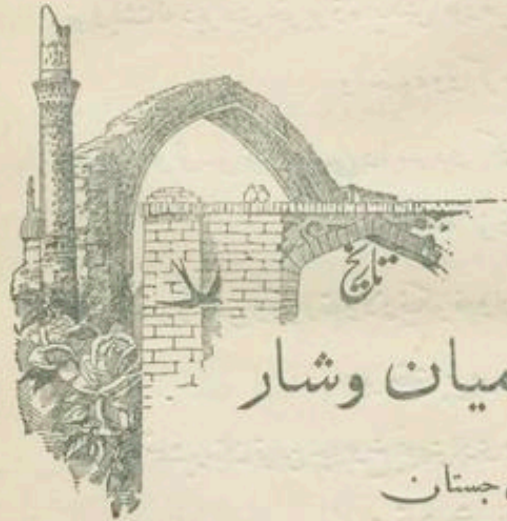 تاريخ
ميان وشار
جستان